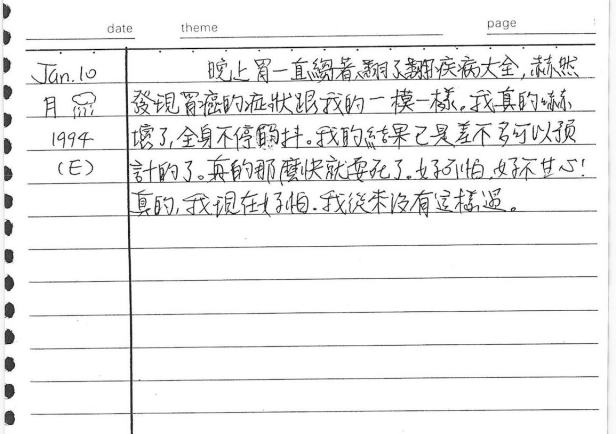 date theme page
Jan.10 晚上胃一直縐著,翻了翻疾病大全,赫然
月 發現胃癌的症狀跟我的一模一樣。我真的嚇
1994 壞了,全身不停顫抖。我的結果已是差不多可以預
(E) 計的了。真的那麼快就要死了。好可怕,好不甘心!
真的,我現在好怕。我從來沒有這樣過。